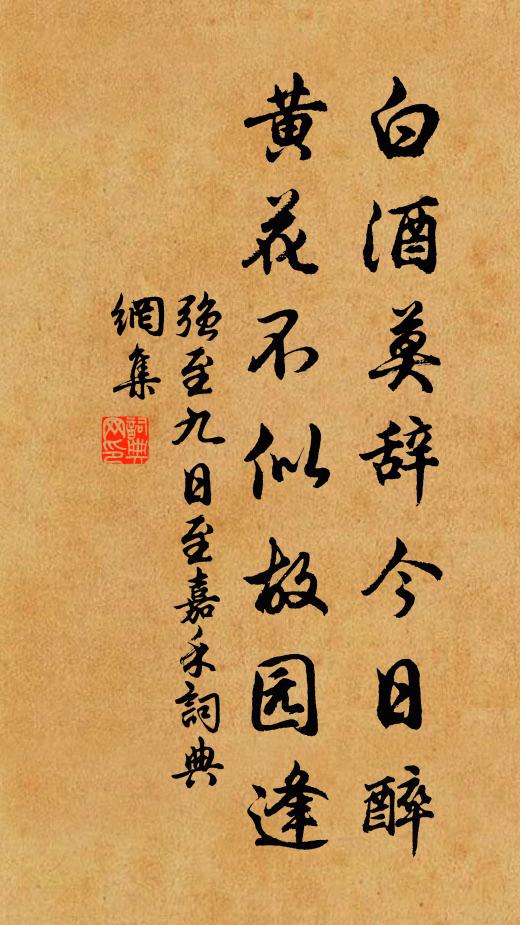 白酒莫辞今日醉
黄花不似故园逢
强至九日至嘉禾詞典
網集
詞典
网印